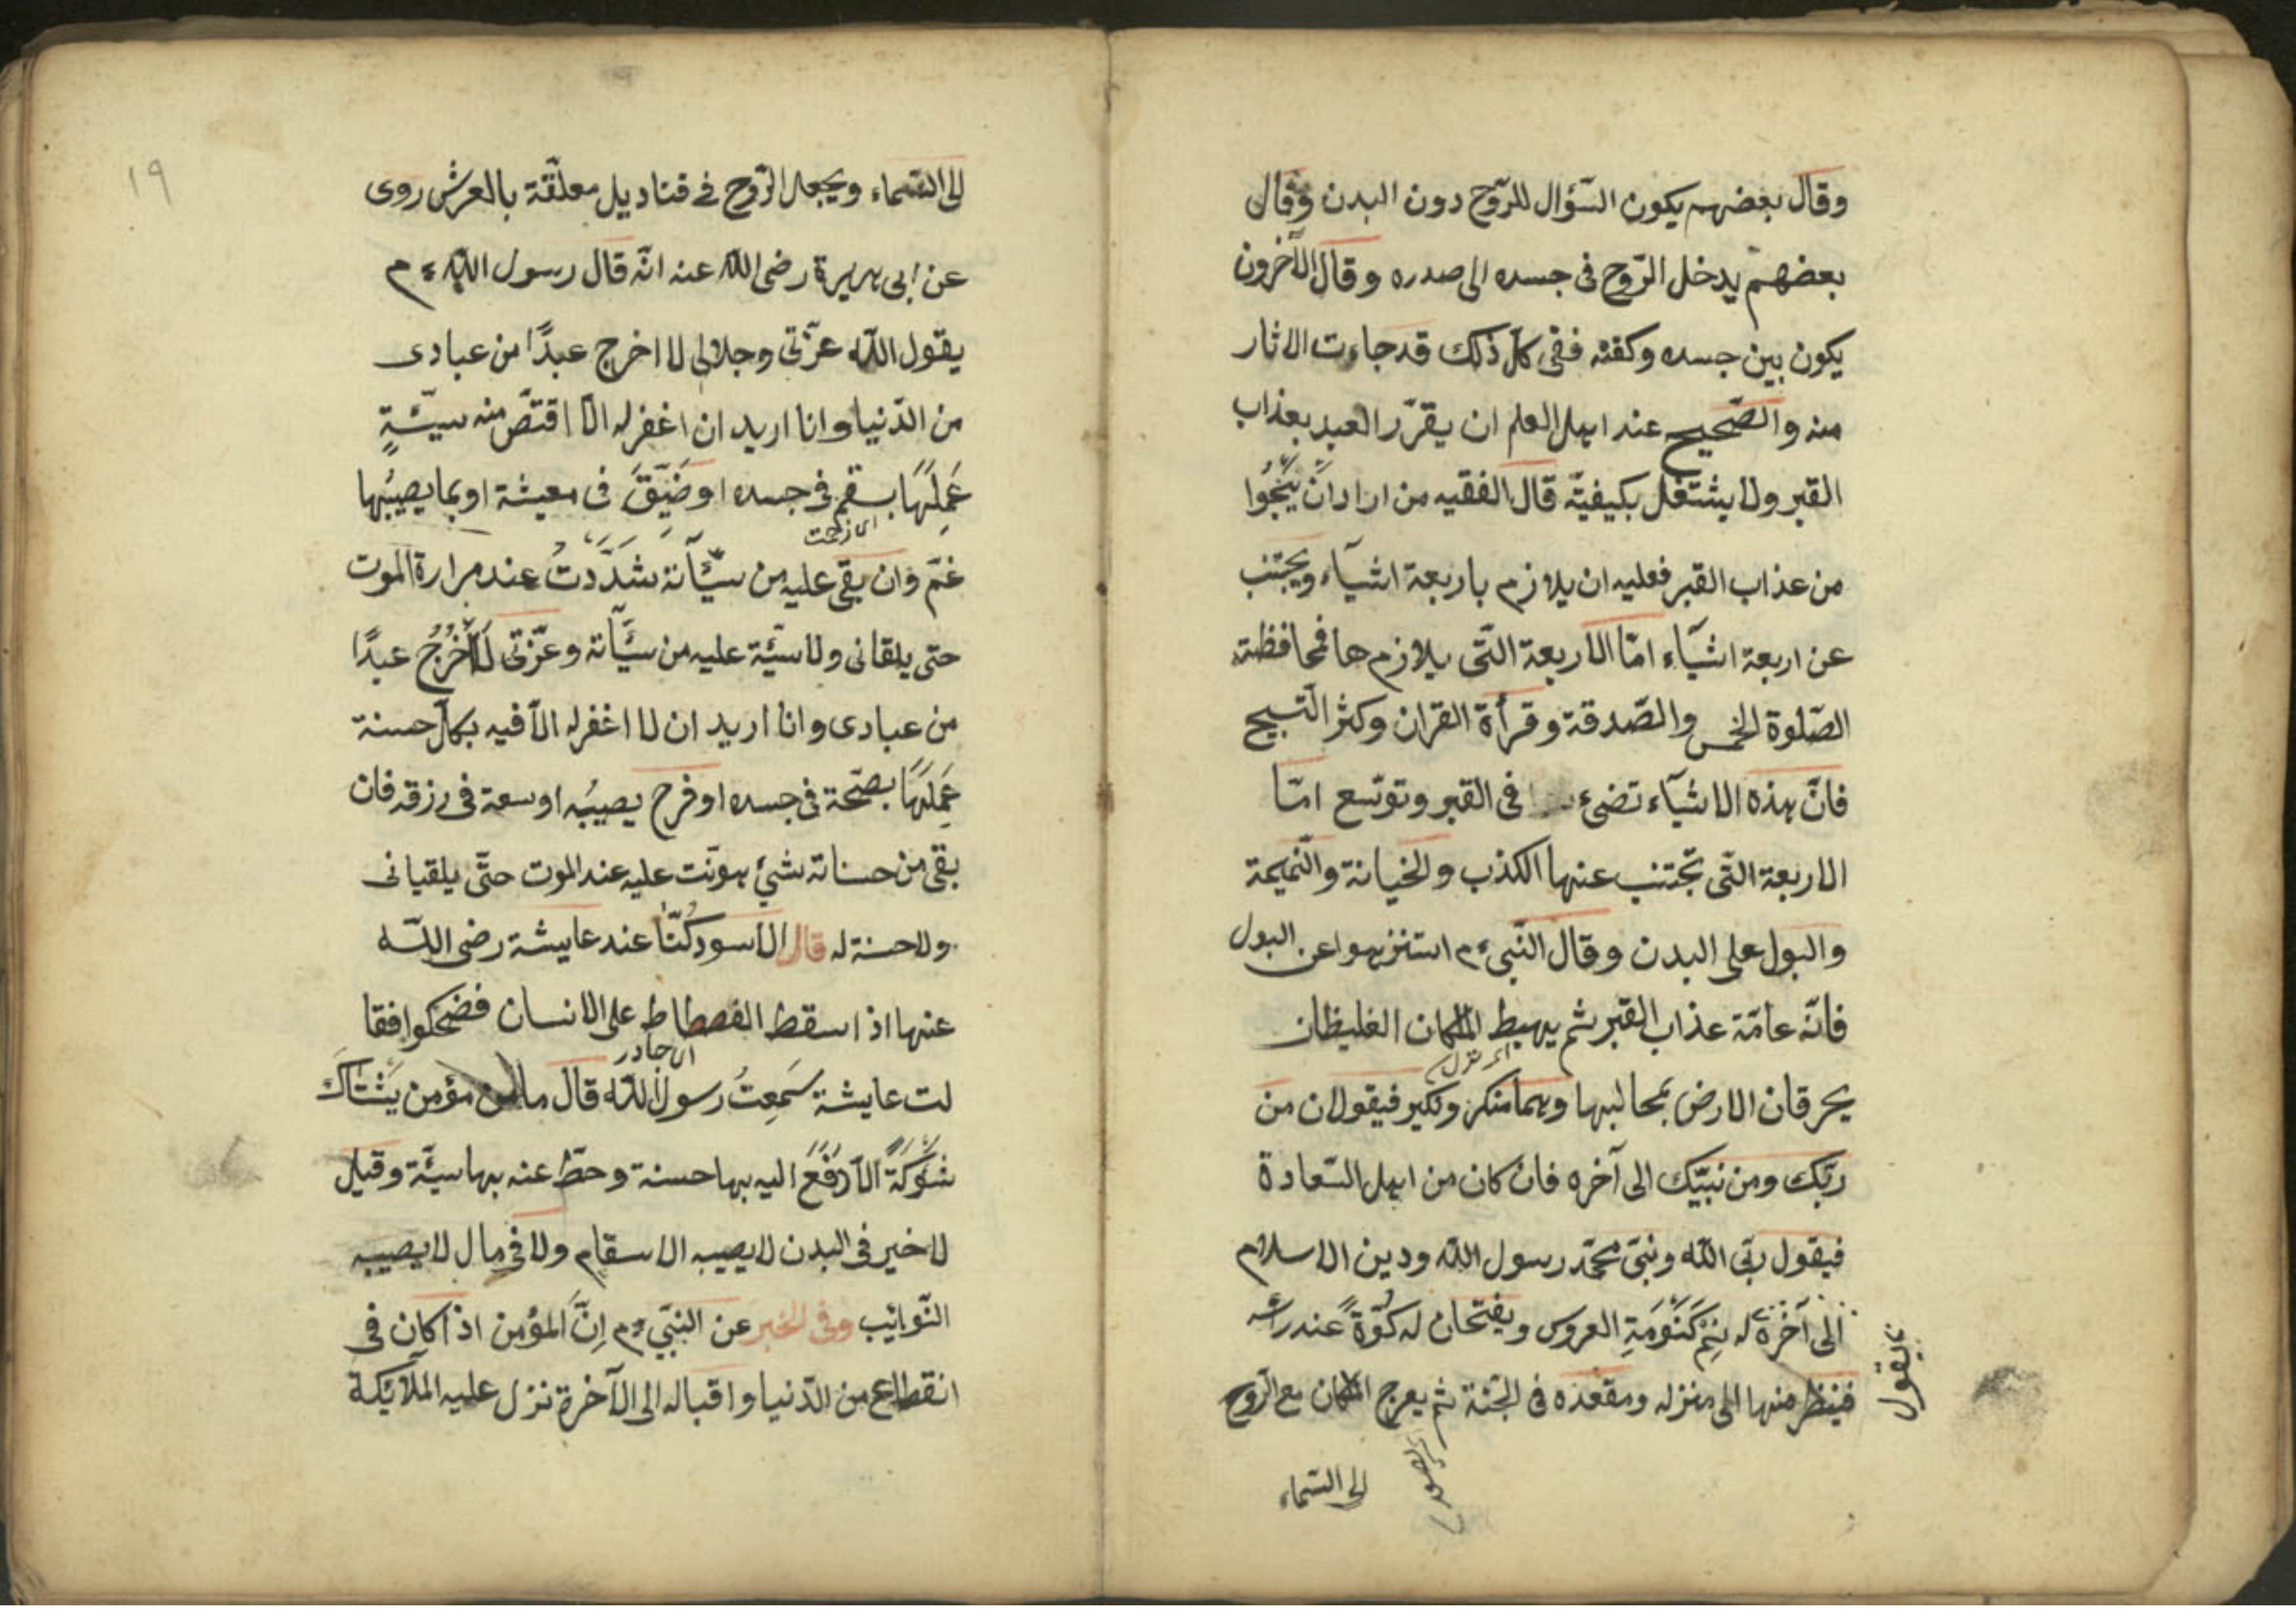 وقال بعضهم يكون السّؤال للرّوح دون البدن وقال
بعضهم يدخل الرّوح فى جسده الى صدره وقال الآخرون
يكون بين جسده وكفنه ففى كلّ ذلك قد جاءت الاثار
منه والصّحيح عند اهل العلم ان يقرّر العبد بعذاب
القبر ولا يشتغل بكيفيّة قال الفقيه من اراد ان ينجُوا
من عذاب القبر فعليه ان يلازم باربعة اشيآء ويجتنب
عن اربعة اشيآء امّا الاربعة التّى يلازم ها فمحافظة
الصّلوة الخمس والصّدقة وقرأة القران وكثر التّسبيح
فانّ هذه الاشيآء تضىء فى القبر وتوسّع امّا
الاربعة التّى تجتنب عنها الكذب والخيانة والنّميمة
والبول على البدن وقال النّبى ءم استنزهوا عن البول
فانّه عامّة عذاب القبر ثم يهبط الملكان الغليظان
اى نزل
يحرقان الارض بمحالبها وهما منكر ونكير فيقولان من
ربّك ومن نبيّك الى آخره فان كان من اهل السّعادة
فيقول ربّى اللّه ونبىّ محمّد رسول اللّه ودين الاسلام
الى آخرة له نِمْ كَنَوْمَةِ العروس ويفتحان له كُوّةً عند رأسه
يقول
فينظر منها الى منزله ومقعده فى الجنّة ثم يعرج الملكان مع الرّوح
الى السّماء
١٩
الى السّماء ويجعل الرّوح فى قناديل معلّقة بالعرش روى
عن ابى هريرة رضى اللّه عنه انّه قال رسول اللّه ءم
يقول اللّه عزّتى وجلالى لا اخرج عبدًا من عبادى
من الدّنيا وانا اريد ان اغفر له الّا اقتصّ منه سيّئةٍ
عَمِلَهَا بسقم فى جسده او ضَيَّقَ فى معيشة او بما يصيبُها
غمّ وان بقى عليه من سيّآته شدَّدتُ عند مرارة الموت
حتى يلقانى ولا سيّئة عليه من سيّآته وعزّتى لَا اُخْرُجُ عبدًا
من عبادى وانا اريد ان لا اغفر له الّا فيه بكلّ حسنة
عَمِلَهَا بصّحة فى جسده او فرح يصيبُه او سعة فى رزقه فان
بقى من حسناته شىْء هوّنت عليه عند الموت حتّى يلقيانى
ولا حسنة له قال الاسود كُنّا عند عايشة رضى اللّه
عنها اذ اسقط الفصطاط على الانسان فضحكوا فقا
اى جادر
لت عايشة سَمِعتُ رسول اللّه قال ما من مؤمن يَشْتَاكَ
شَوْكَةً الّا رَفَعَ اليه بها حسنة وحطّ عنه بها سيّئة وقيل
لا خير فى البدن لا يصيبه الاسقام ولا فى مال لا يصيبه
النّوائيب وفى الخبر عن النبّي ءم اِنَّ المؤمن اذا كان فى
انقطاع من الدّنيا واقباله الى الآخرة نزل عليه الملآئكة